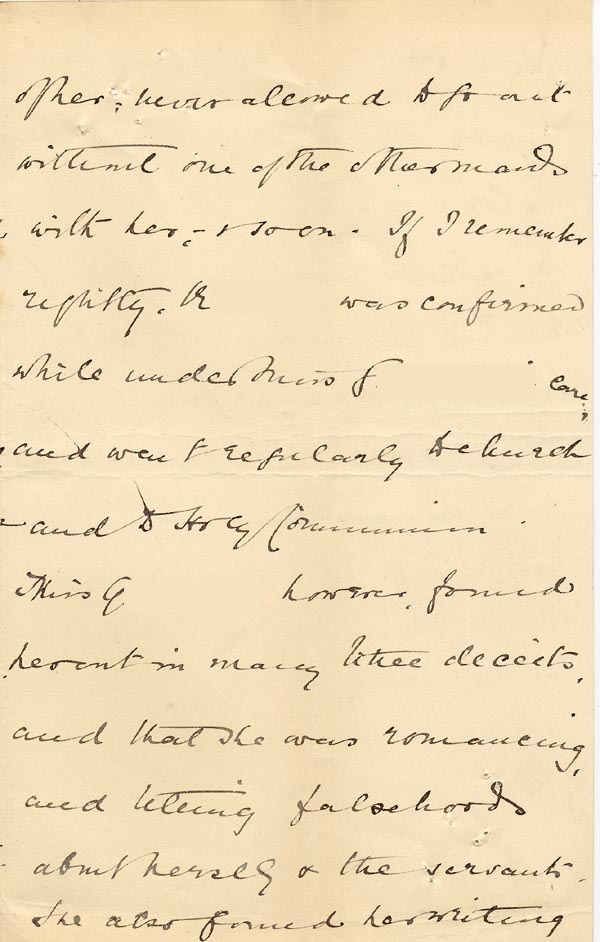 of her, never allowed to go out
without one of the other maids
with her, - & so on - If I remember
rightly, K was confirmed
while under Miss G care,
and went regularly to church
and to Holy Communion.
Miss G however, found
her out in many little deceits,
and that she was romancing,
and telling falsehoods
about herself & the servants.
She also found her writing